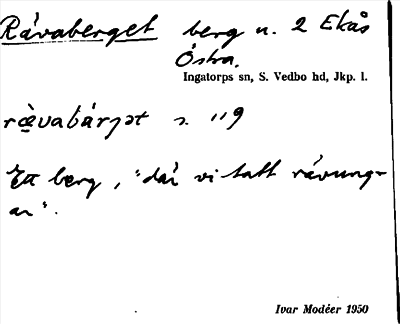 Rävaberget berg n. 2 Ekås
Östra.
Ingatorps sn, S. Vedbo hd, Jkp. l.
ræ̀vabárjət s. 119
Ett berg, "där vi tatt rävung-
ar".
Ivar Modéer 1950